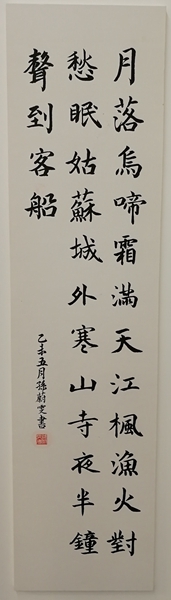 月落烏啼霜滿天江楓漁火對
愁眠姑蘇城外寒山寺夜半鐘
聲到客船
乙未五月孫蔚書